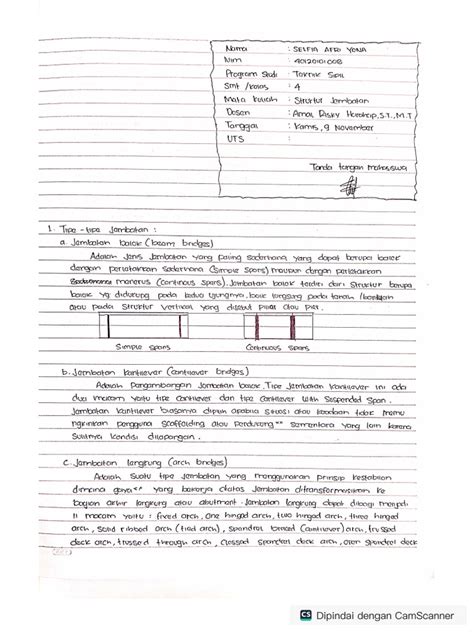 Nama : SELFIA AFRO YONA
Nim : 4012010100B
Program Studi : Teknik Sipil
Smt / kelas : 4
Mata kuliah : Struktur Jembatan
Dosen : Amai Risky Harahap, S.T., M.T
Tanggal : Kamis, 9 November
UTS :
Tanda tangan Mahasiswa
1. Tipe - tipe Jembatan :
a. Jembatan balok (beam bridges)
Adalah Jenis Jembatan yang paling sederhana, yang dapat berupa balok
dengan perletakan sederhana (Simple spans) maupun dengan perletakan
menerus (continous spans). Jembatan balok terdiri dari struktur berupa
balok yg didukung pada kedua ujungnya, baik langsung pada tanah /
atau pada struktur vertikal yang disebut pilar atau pier.
Simple spans Continuous spans
b. Jembatan Kantilever (Cantilever bridges)
Adalah Pengembangan Jembatan balok. Tipe Jembatan Kantilever ini ada
dua macam yaitu tipe Cantilever dan tipe Cantilever With Suspended Span.
Jembatan Kantilever biasanya dipilih apabila situasi atau keadaan tidak memu
ngkinkan pengguna Scaffolding atau Pendukung" Sementara yang lain karena
Sulitnya kondisi dilapangan.
c. Jembatan langkung (arch bridges)
Adalah Suatu tipe Jembatan yang menggunakan prinsip kestabilan
dimana gaya" yang bekerja diatas Jembatan ditransformasikan ke
bagian akhir langkung atau abutment. Jembatan langkung dapat dibagi menjadi
11 macam yaitu : fixed arch, one hinged arch, two hinged arch, three hinged
arch, Solid ribbed arch (tied arch), spandrel braced (cantilever) arch, trussed
deck arch, trussed through arch, closed spandrel deck arch, open spandrel deck
CS Dipindai dengan CamScanner